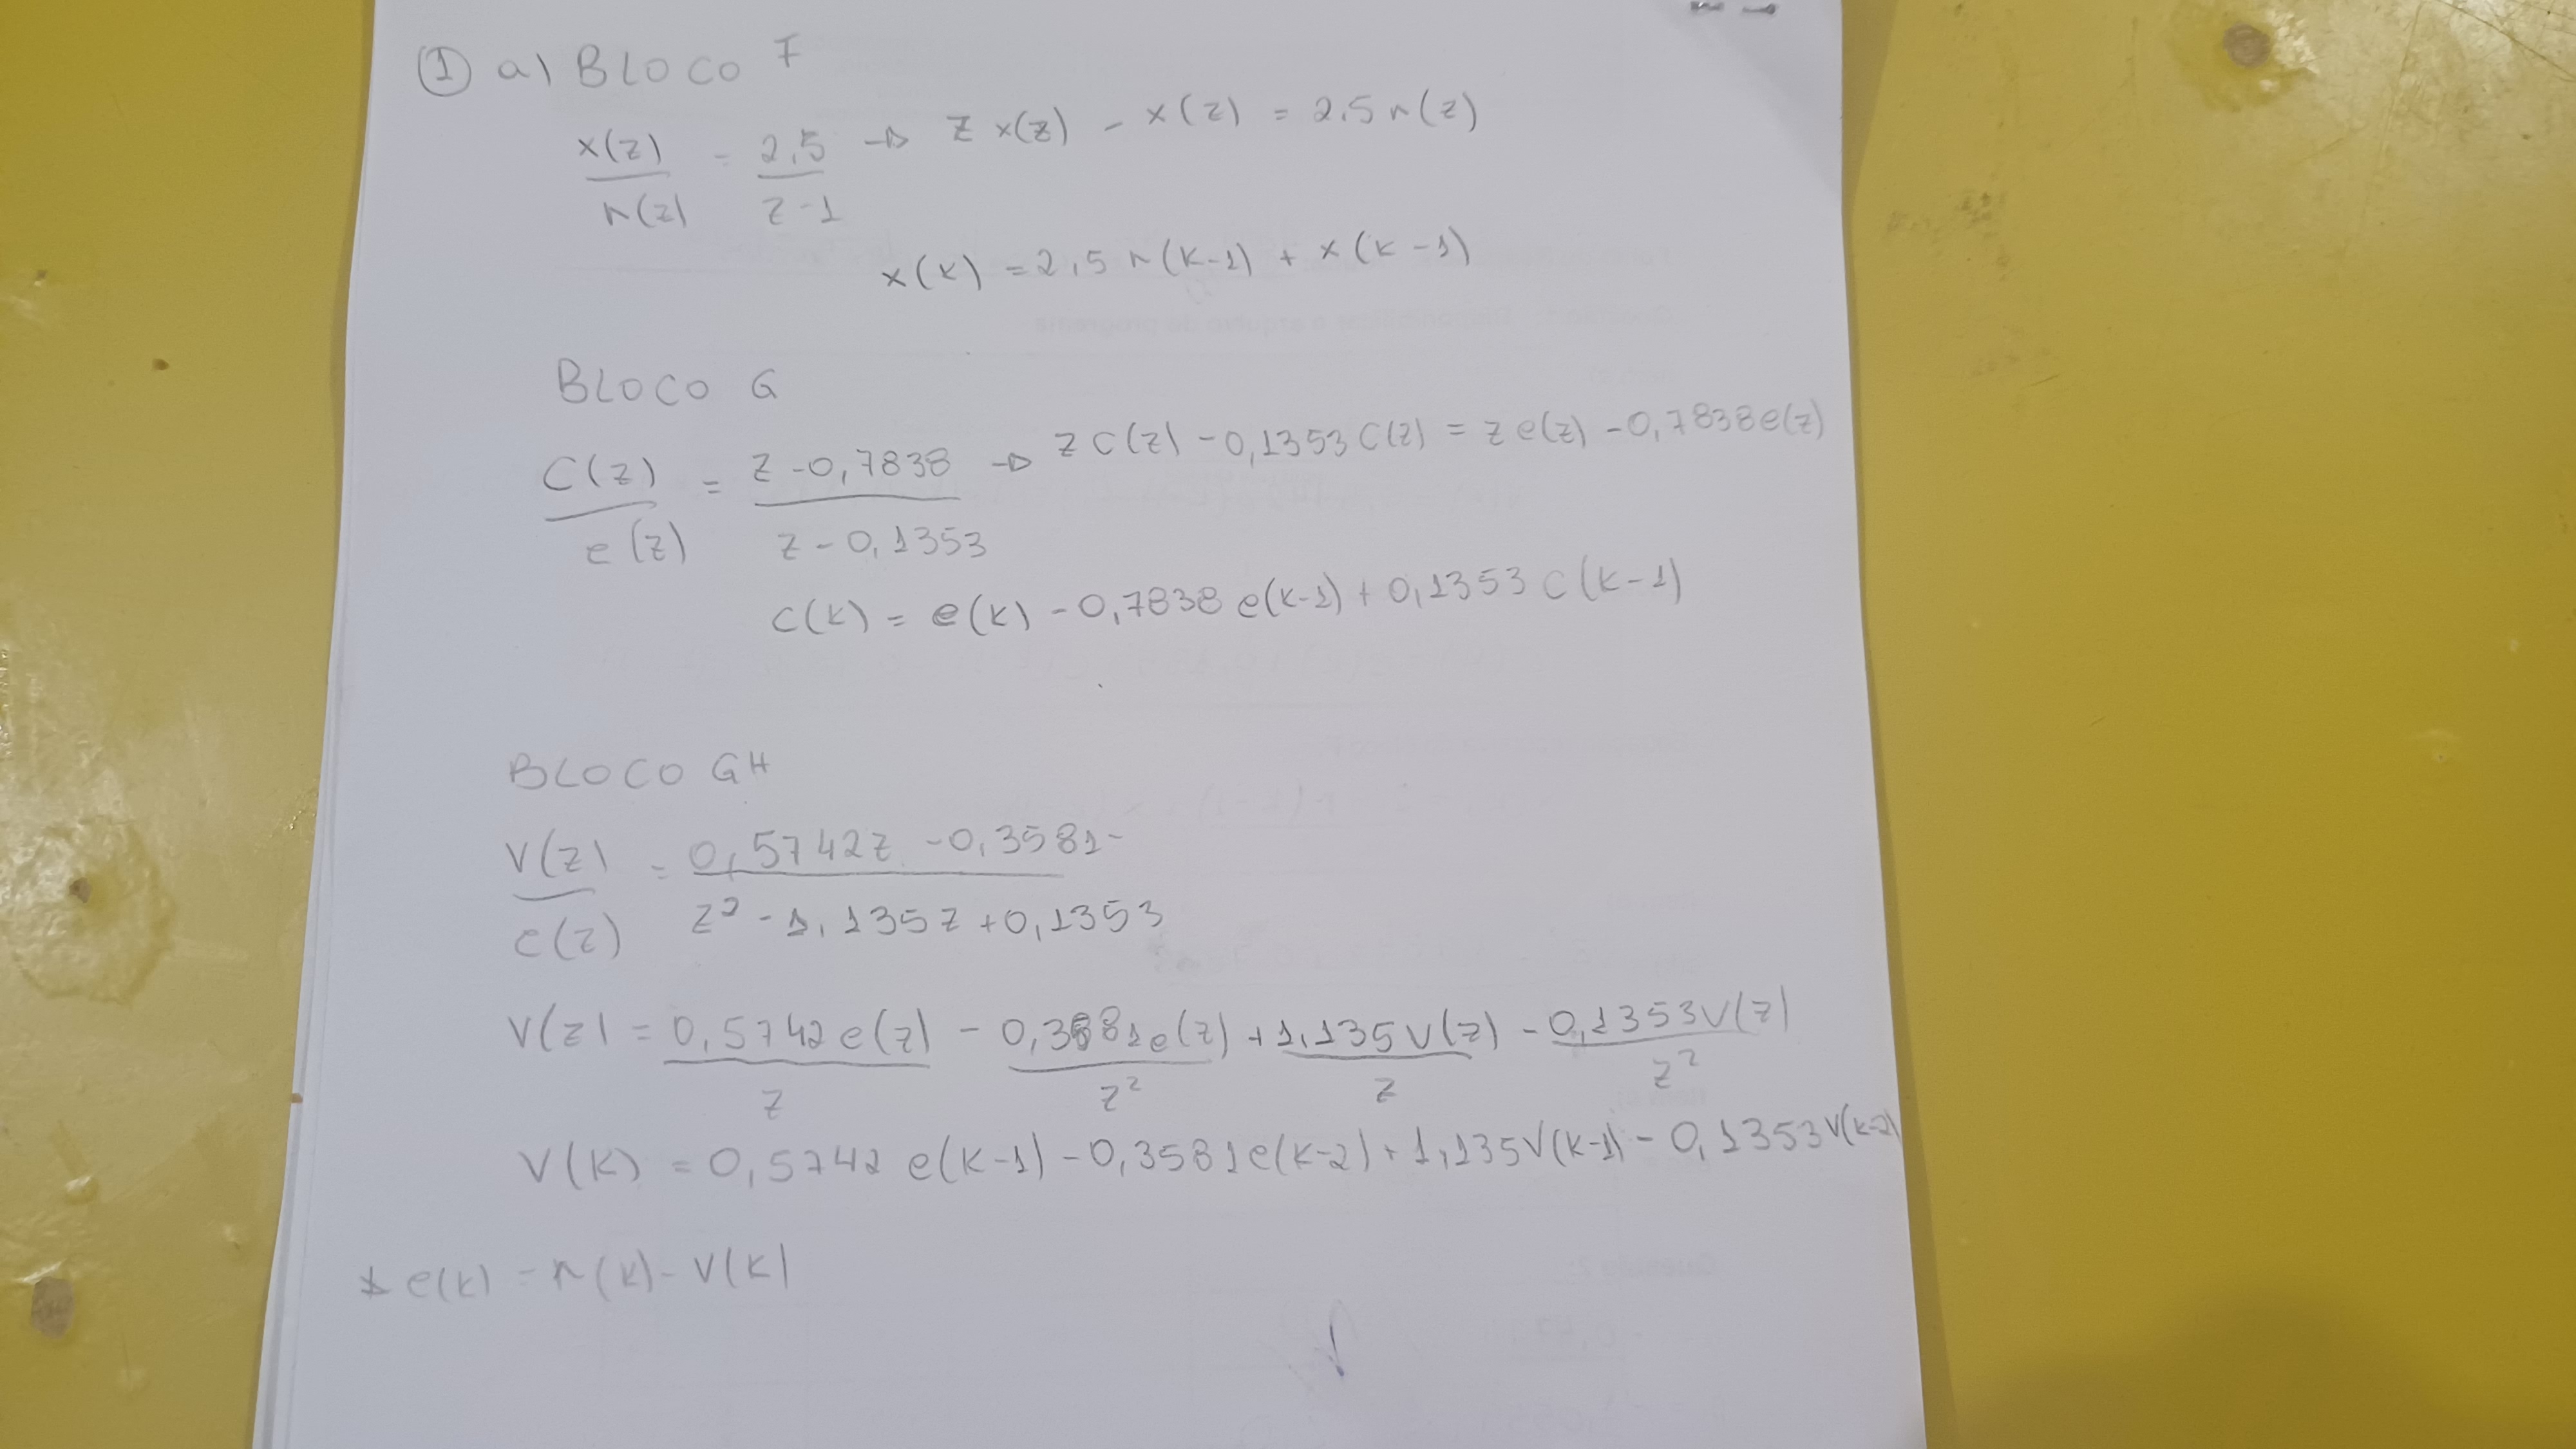 ① a) BLOCO F
x(z) = 2,5 → z x(z) - x(z) = 2,5 r(z)
r(z) z-1
x(k) = 2,5 r(k-1) + x(k-1)
BLOCO G
C(z) = z-0,7838 → z C(z) - 0,1353 C(z) = z e(z) - 0,7838 e(z)
e(z) z-0,1353
C(k) = e(k) - 0,7838 e(k-1) + 0,1353 C(k-1)
BLOCO GH
V(z) = 0,5742z - 0,3581
e(z) z² - 1,135z + 0,1353
V(z) = 0,5742 e(z) - 0,3581 e(z) + 1,135 V(z) - 0,1353 V(z)
z z² z z²
V(k) = 0,5742 e(k-1) - 0,3581 e(k-2) + 1,135 V(k-1) - 0,1353 V(k-2)
* e(k) = r(k) - V(k)